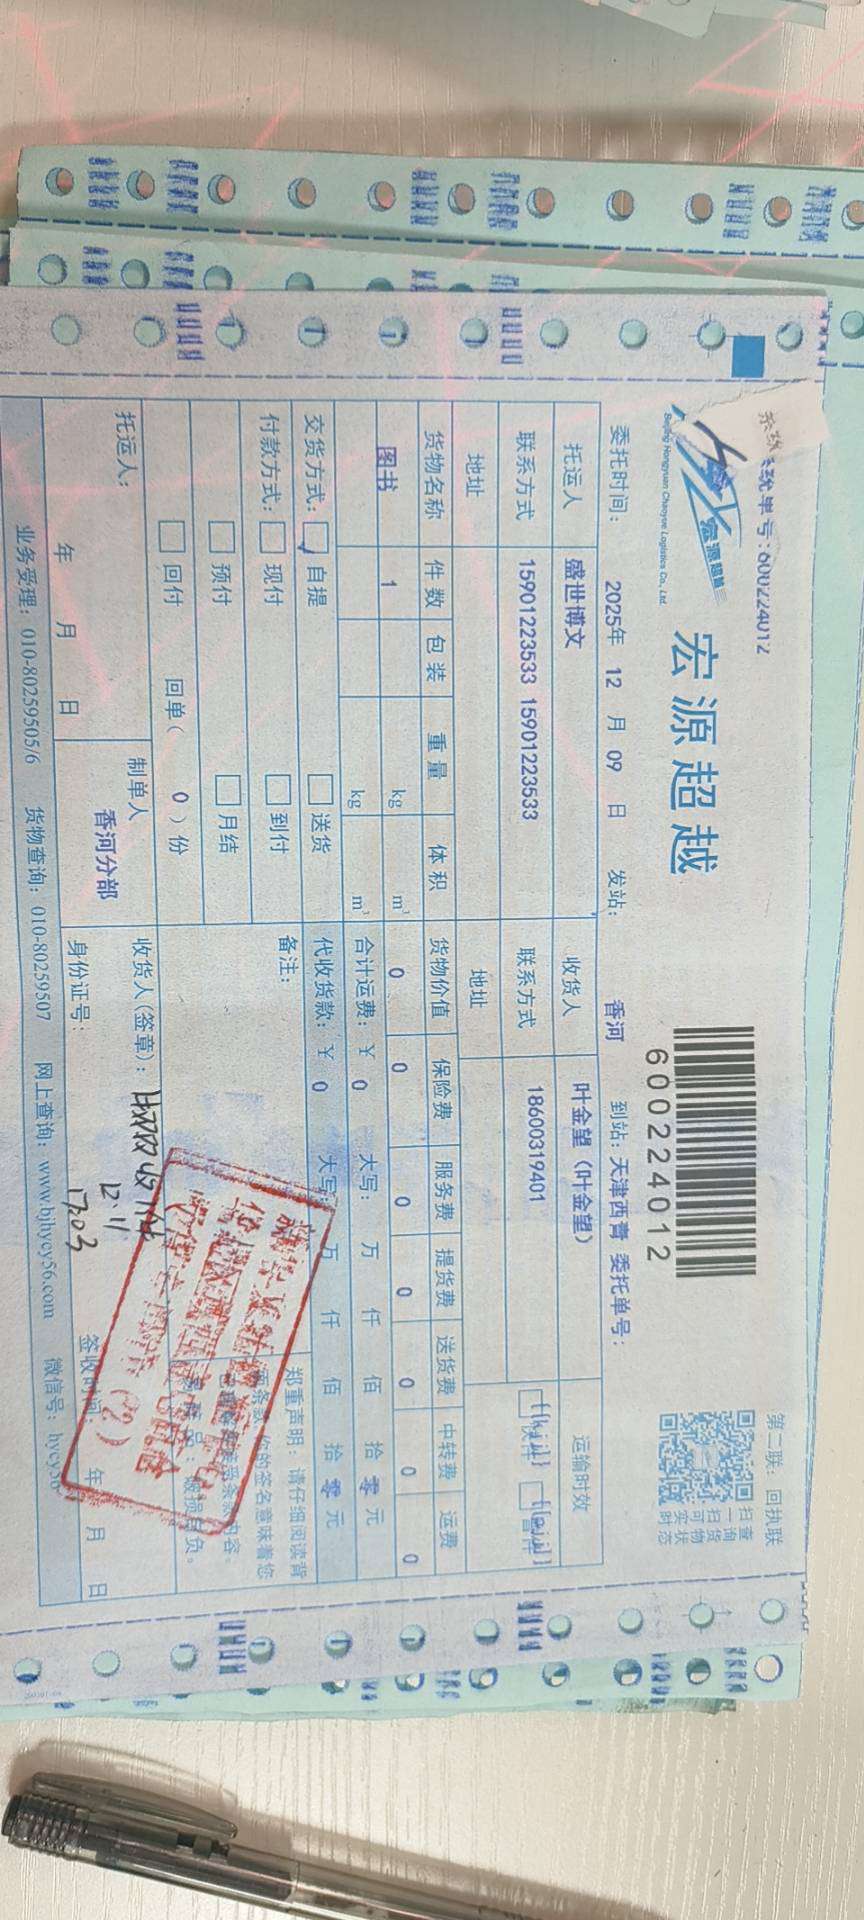 系统单号:600224012
第二联: 回执联
宏源超越
Beijing Hongyuan Chaoyue Logistics Co., Ltd.
宏源超越
600224012
扫查
一询
扫货
可物
实状
时态
委托时间: 2025年 12 月 09 日 发站: 香河 到站: 天津西青 委托单号:
托运人 盛世博文 收货人 叶金望 (叶金望) 运输时效
联系方式 15901223533 15901223533 联系方式 18600319401
地址 地址
货物名称 件数 包装 重量 体积 货物价值 保险费 服务费 提货费 送货费 中转费 运费
图书 1 kg m³ 0 0 0 0 0 0 0
kg m³ 合计运费: ¥ 0 大写: 万 仟 佰 拾 零 元
交货方式: 自提 送货 代收货款: ¥ 0 大写: 万 仟 佰 拾 零 元
付款方式: 现付 到付 备注: 郑重声明: 请仔细阅读背
预付 月结
回付 回单( 0 )份
托运人: 制单人 收货人(签章):
香河分部
12.11
年 月 日 身份证号: 签收时间: 年 月 日
17:03
业务受理: 010-80259505/6 货物查询: 010-80259507 网上查询: www.bjhycy56.com 微信号: hycy56